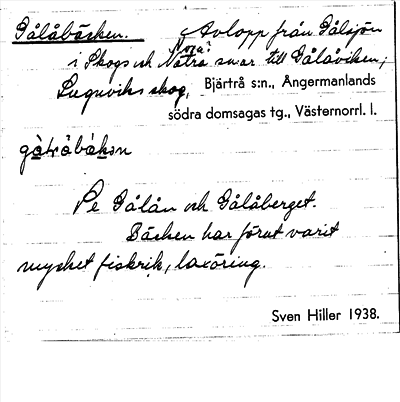 Gålåbäcken. Avlopp från Gålsjön
i Skogs och Nora snar till Gålåviken,
Lugnviks skog, Bjärtrå s:n., Ångermanlands
södra domsagas tg., Västernorrl. l.
Se Gålån och Gålåberget.
Bäcken har förut varit
mycket fiskrik, laxöring.
Sven Hiller 1938.